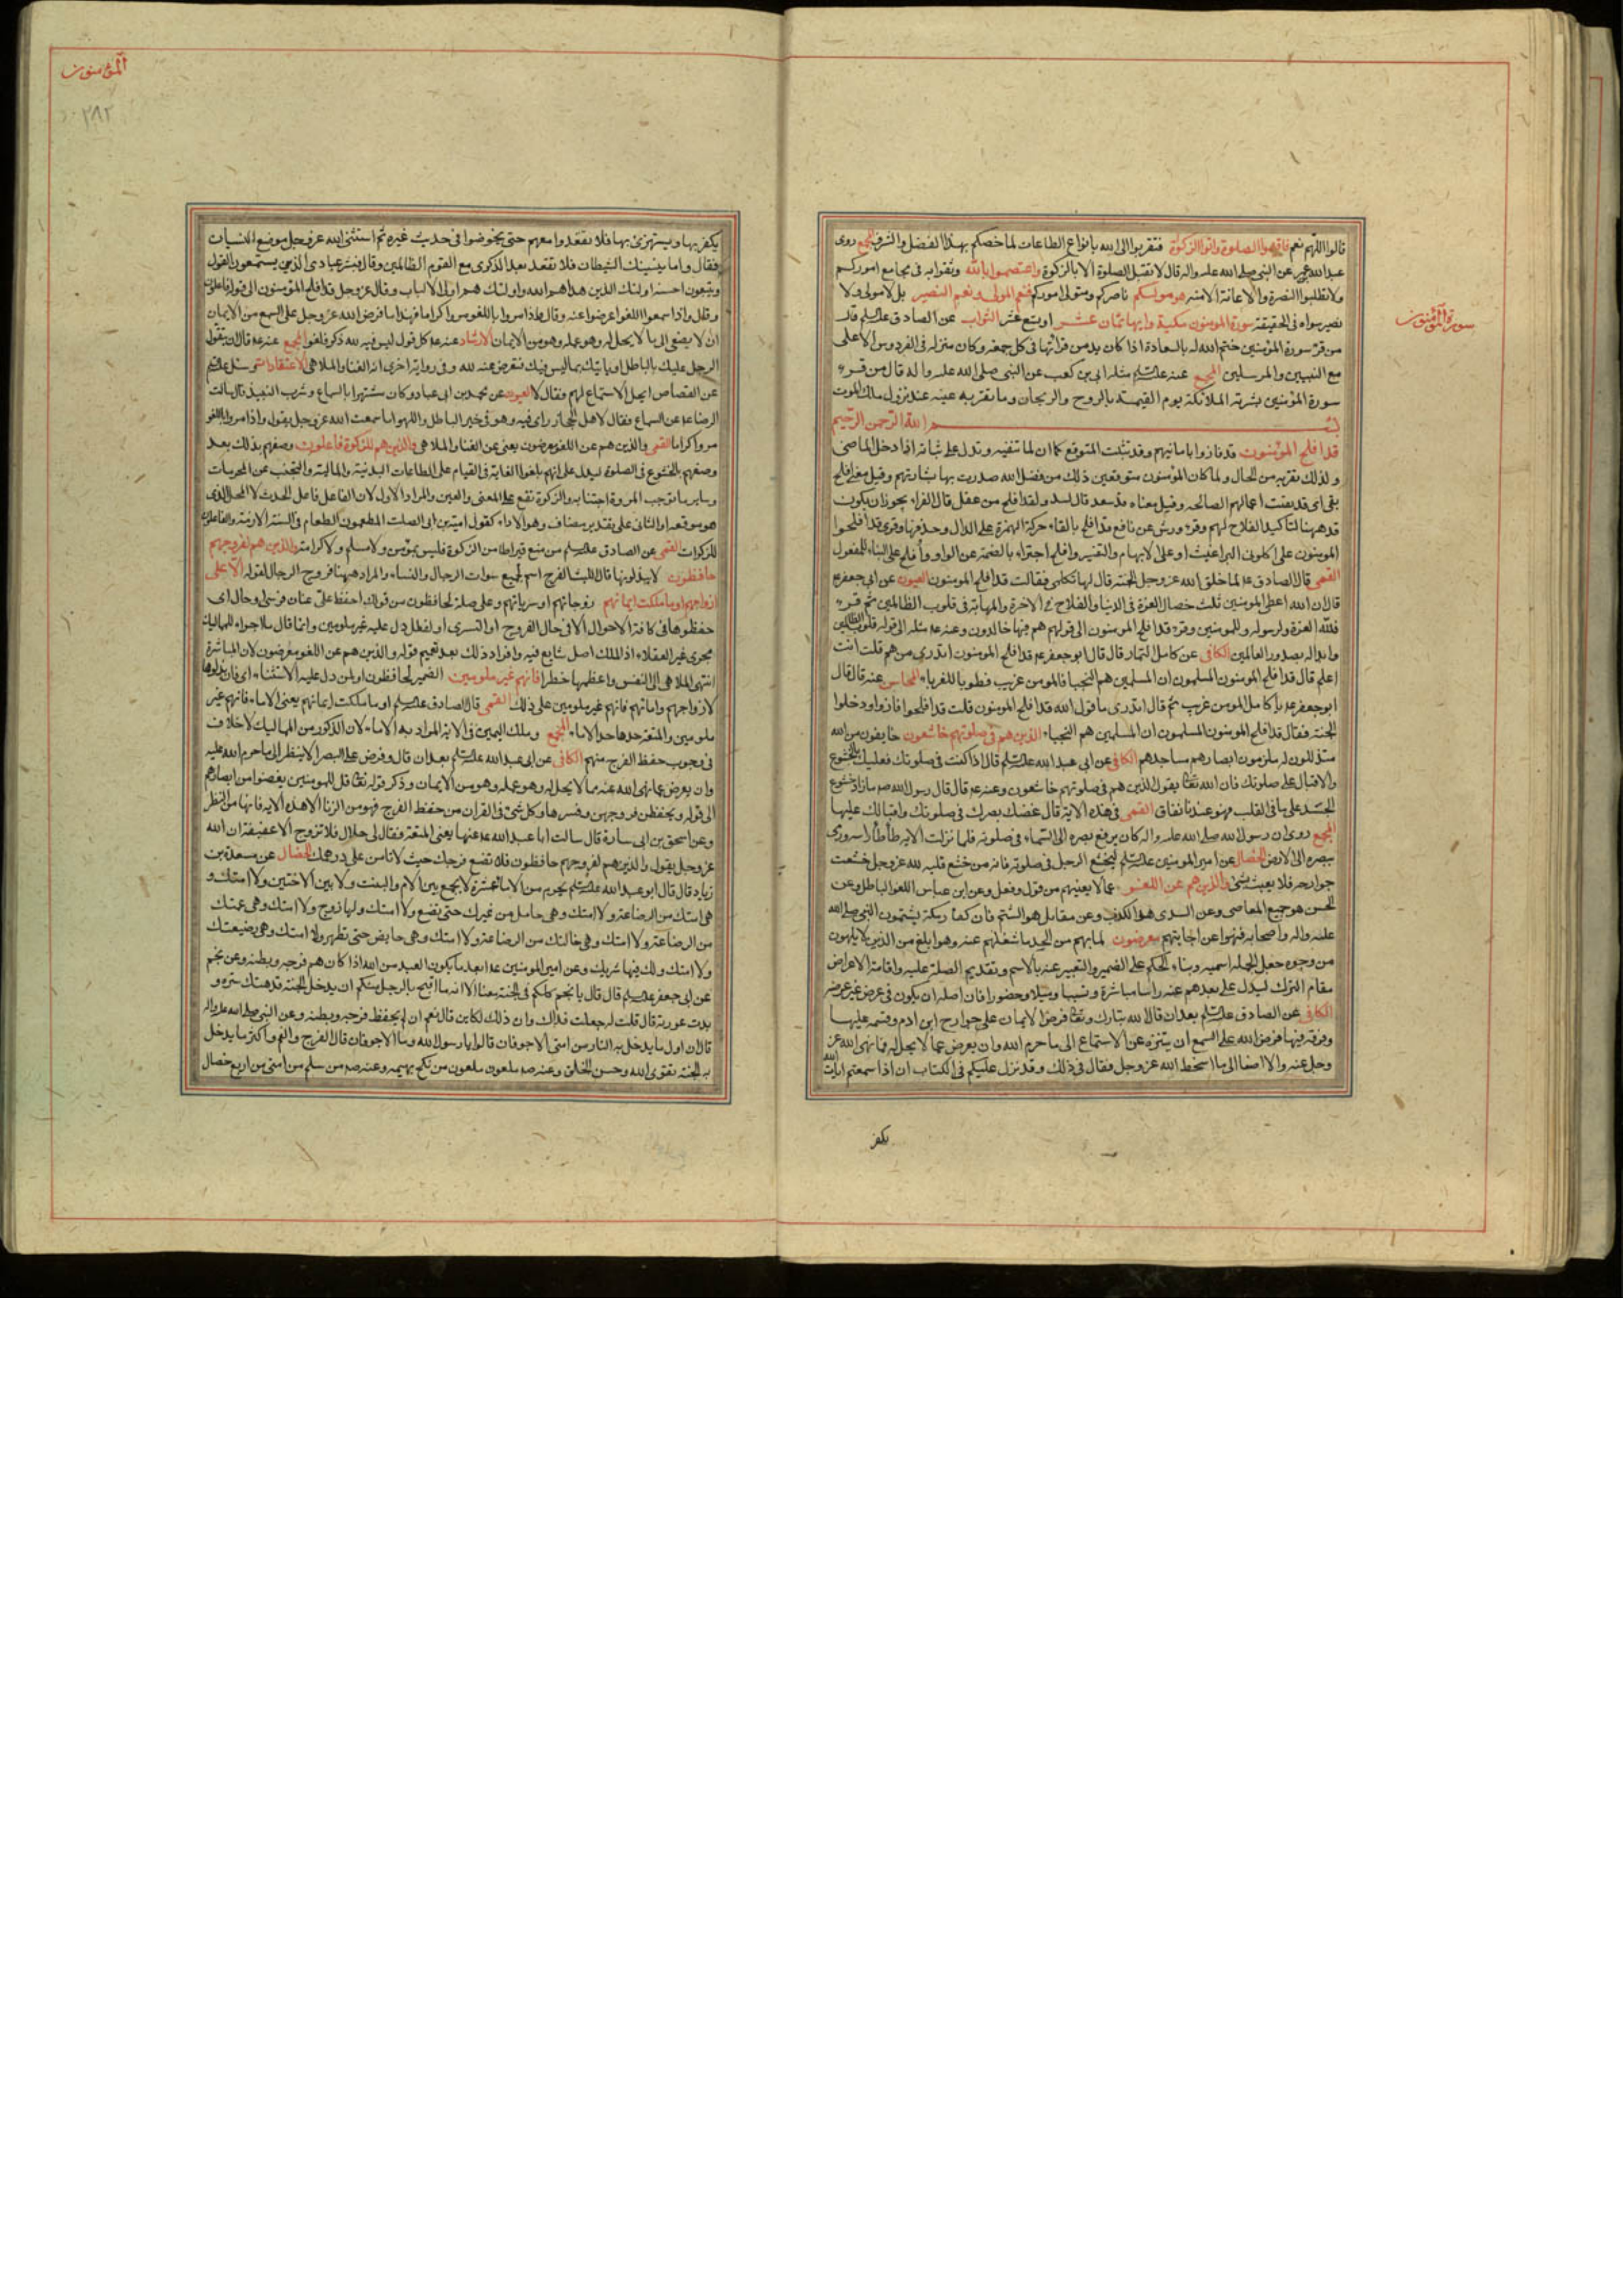 سورة المؤمنون
قالوا اللهم نعم فاقيموا الصلوة واتوا الزكوة فتقربوا الى الله بانواع الطاعات لما خصكم بهذا الفضل والشرف المجمع روى
عبد الله بن عمر عن النبى صلى الله عليه واله قال لا تقبل الصلوة الا بالزكوة واعتصموا بالله وثقوا به فى مجامع اموركم
ولا تطلبوا النصرة والاعانة الا منه هو موليكم ناصركم ومتولى اموركم فنعم المولى ونعم النصير بل لا مولى ولا
نصير سواه فى الحقيقة سورة المومنون مكية وايها ثمان عشر او تسع عشر الثواب عن الصادق عليه السلم قال
من قرء سورة المؤمنين ختم الله له بالسعادة اذا كان يدمن قراتها فى كل جمعة وكان منزله فى الفردوس الاعلى
مع النبيين والمرسلين المجمع عنه عليه السلم مثله ابى بن كعب عن النبى صلى الله عليه واله قال من قرء
سورة المؤمنين بشرته الملائكة يوم القيمة بالروح والريحان وما تقر به عينه عند نزول ملك الموت
بسم الله الرحمن الرحيم
قد افلح المؤمنون قد فازوا بامانيهم وقد تثبت المتوقع كما ان لما تنفيه وتدل على ثباته اذا دخل الماضى
ولذلك تقربه من الحال ولما كان المؤمنون متوقعين ذلك من فضل الله صدرت بها بشارتهم وقيل معنى افلح
بقى اى قد بقت اعمالهم الصالحة وقيل معناه قد سعد قال لبيد ولقد افلح من عقل قال الفراء يجوز ان يكون
قد ههنا لتاكيد الفلاح لهم وقرء ورش عن نافع قد افلح بالقاء حركة الهمزة على الدال وحذفها وقرى قد افلحوا
المومنون على اكلونى البراغيث او على الابهام والتفسير وافلح اجتزاء بالضمة عن الواو وأفلح على البناء للمفعول
القمى قال الصادق ع لما خلق الله عز وجل الجنة قال لها تكلمى فقالت قد افلح المومنون العيون عن ابى جعفر ع
قال ان الله اعطى المومنين ثلث خصال العزة فى الدنيا والفلاح فى الاخرة والمهابة فى قلوب الظالمين ثم قرء
فلله العزة ولرسوله وللمومنين وقرء قد افلح المومنون الى قولهم هم فيها خالدون وعنه ع مثله الى قوله قلوب الظالمين
وابداله بصدور العالمين الكافى عن كامل التمار قال قال ابو جعفر ع قد افلح المومنون اتدرى من هم قلت انت
اعلم قال قد افلح المومنون المسلمون ان المسلمين هم النجباء فالمومن غريب فطوبى للغرباء المحاسن عنه قال قال
ابو جعفر ع يا كامل المومن غريب ثم قال اتدرى ما قول الله قد افلح المومنون قلت قد افلحوا فازوا ودخلوا
الجنة فقال قد افلح المومنون المسلمون ان المسلمين هم النجباء الذين هم فى صلوتهم خاشعون خايفون من الله
متذللون له ملزمون ابصارهم مساجدهم الكافى عن ابى عبد الله عليه السلم قال اذا كنت فى صلوتك فعليك بالخشوع
والاقبال على صلوتك فان الله تعالى يقول الذين هم فى صلوتهم خاشعون وعنه ع قال قال رسول الله ص ما زاد خشوع
الجسد على ما فى القلب فهو عندنا نفاق القمى فى هذه الاية قال غضك بصرك فى صلوتك واقبالك عليها
المجمع روى ان رسول الله صلى الله عليه واله كان يرفع بصره الى السماء فى صلوته فلما نزلت الاية طأطأ راسه ورمى
ببصره الى الارض الخصال عن امير المومنين عليه السلم ليخشع الرجل فى صلوته فانه من خشع قلبه لله عز وجل خشعت
جوارحه فلا يعبث بشئ والذين هم عن اللغو عما لا يعنيهم من قول وفعل وعن ابن عباس اللغو الباطل وعن
الحسن هو جميع المعاصى وعن السدى هو الكذب وعن مقاتل هو الشتم فان كفار مكة يشتمون النبى صلى الله
عليه واله واصحابه فنهوا عن اجابتهم معرضون لما بهم من الجد ما شغلهم عنه وهو ابلغ من الذين لا يلهون
من وجوه جعل الجملة اسمية وبناء الحكم على الضمير والتعبير عنه بالاسم وتقديم الصلة عليه واقامة الاعراض
مقام الترك ليدل على بعدهم عنه راسا مباشرة وتسببا وميلا وحضورا فان اصله ان يكون فى عرض غير عرضه
الكافى عن الصادق عليه السلم بعد ان قال الله تبارك وتعالى فرض الايمان على جوارح ابن ادم وقسمه عليها
وفرقه فيها فرض الله على السمع ان يتنزه عن الاستماع الى ما حرم الله وان يعرض عما لا يحل له مما نهى الله عز
وجل عنه والاصغا الى ما اسخط الله عز وجل فقال فى ذلك وقد نزل عليكم فى الكتاب ان اذا سمعتم ايات الله
يكفر
المؤمنون
٢٨٢
يكفر بها ويستهزئ بها فلا تقعدوا معهم حتى يخوضوا فى حديث غيره ثم استثنى الله عز وجل موضع النسيان
فقال واما ينسينك الشيطان فلا تقعد بعد الذكرى مع القوم الظالمين وقال فبشر عبادى الذين يستمعون القول
ويتبعون احسنه اولئك الذين هداهم الله واولئك هم اولى الالباب وقال عز وجل قد افلح المؤمنون الى قوله فاعلون
وقال واذا سمعوا اللغو اعرضوا عنه وقال واذا مروا باللغو مروا كراما فهذا ما فرض الله عز وجل على السمع من الايمان
ان لا يصغى الى ما لا يحل له وهو عمله وهو من الايمان الارشاد عنه ع كل قول ليس فيه لله ذكر فلغو المجمع عنه ع قال ان يتقول
الرجل عليك بالباطل او ياتيك بما ليس فيك فتعرض عنه لله وفى رواية اخرى انه الغنا والملاهى الاعتقادات سئل عليه السلم
عن القصاص ايحل الاستماع لهم فقال لا العيون عن محمد بن ابى عباد وكان مشتهرا بالسماع وشرب النبيذ قال سالت
الرضا ع عن السماع فقال لاهل الحجاز راى فيه وهو فى حيز الباطل واللهو اما سمعت الله عز وجل يقول واذا مروا باللغو
مروا كراما القمى والذين هم عن اللغو معرضون يعنى عن الغنا والملاهى والذين هم للزكوة فاعلون وصفهم بذلك بعد
وصفهم بالخشوع فى الصلوة ليدل على انهم بلغوا الغاية فى القيام على الطاعات البدنية والمالية والتجنب عن المحرمات
وساير ما توجب المروة اجتنابه والزكوة تقع على المعنى والعين والمراد الاول لان الفاعل فاعل الحدث لا المحل الذى
هو موقعه او الثانى على تقدير مضاف وهو الاداء كقول امية بن ابى الصلت المطعمون الطعام فى السنة الازمة والفاعلون
للزكوات القمى عن الصادق عليه السلم من منع قيراطا من الزكوة فليس بمؤمن ولا مسلم ولا كرامة والذين هم لفروجهم
حافظون لا يبذلونها قال الليث الفرج اسم لجميع سوات الرجال والنساء والمراد ههنا فروج الرجال لقوله الا على
ازواجهم او ما ملكت ايمانهم زوجاتهم او سرياتهم وعلى صلة لحافظون من قولك احفظ على عنان فرسى او حال اى
حفظوها فى كافة الاحوال الا فى حال التزوج او التسرى او لفعل دل عليه غير ملومين وانما قال ما اجراء للمماليك
مجرى غير العقلاء اذ الملك اصل شايع فيه وافراد ذلك بعد تعميم قوله والذين هم عن اللغو معرضون لان المباشرة
اشهى الملاهى الى النفس واعظمها خطرا فانهم غير ملومين الضمير لحافظون او لمن دل عليه الاستثناء اى فان بذلوها
لازواجهم وامائهم فانهم غير ملومين على ذلك القمى قال الصادق عليه السلم او ما ملكت ايمانهم يعنى الاماء فانهم غير
ملومين والمتعة حدها حد الاماء المجمع وملك اليمين فى الاية المراد به الاماء لان الذكور من المماليك لا خلاف
فى وجوب حفظ الفرج منهم الكافى عن ابى عبد الله عليه السلم بعد ان قال وفرض على البصر الا ينظر الى ما حرم الله عليه
وان يعرض عما نهى الله عنه مما لا يحل له وهو عمله وهو من الايمان وذكر قوله تعالى قل للمومنين يغضوا من ابصارهم
الى قوله ويحفظن فروجهن وفسرها وكل شئ فى القران من حفظ الفرج فهو من الزنا الا هذه الاية فانها من النظر
وعن اسحق بن ابى سارة قال سالت ابا عبد الله ع عنها يعنى المتعة فقال لى حلال فلا تزوج الا عفيفة ان الله
عز وجل يقول والذين هم لفروجهم حافظون فلا تضع فرجك حيث لا تامن على درهمك الخصال عن مسعدة بن
زياد قال قال ابو عبد الله عليه السلم يحرم من الاماء عشرة لا يجمع بين الام والبنت ولا بين الاختين ولا امتك و
هى اختك من الرضاعة ولا امتك وهى حامل من غيرك حتى تضع ولا امتك ولها زوج ولا امتك وهى عمتك
من الرضاعة ولا امتك وهى خالتك من الرضاعة ولا امتك وهى حايض حتى تطهر ولا امتك وهى رضيعتك
ولا امتك ولك فيها شريك وعن امير المومنين ع ابعد ما يكون العبد من الله اذا كان همه فرجه وبطنه وعن نجم
عن ابى جعفر عليه السلم قال قال يا نجم كلكم فى الجنة معنا الا انه ما اقبح بالرجل منكم ان يدخل الجنة قد هتك ستره و
بدت عورته قال قلت له جعلت فداك وان ذلك لكاين قال نعم ان لم يحفظ فرجه وبطنه وعن النبى صلى الله عليه واله
قال ان اول ما يدخل به النار من امتى الاجوفان قالوا يا رسول الله وما الاجوفان قال الفرج والفم واكثر ما يدخل
به الجنة تقوى الله وحسن الخلق وعنه ص ملعون ملعون من نكح بهيمة وعنه ص من سلم من امتى من اربع خصال